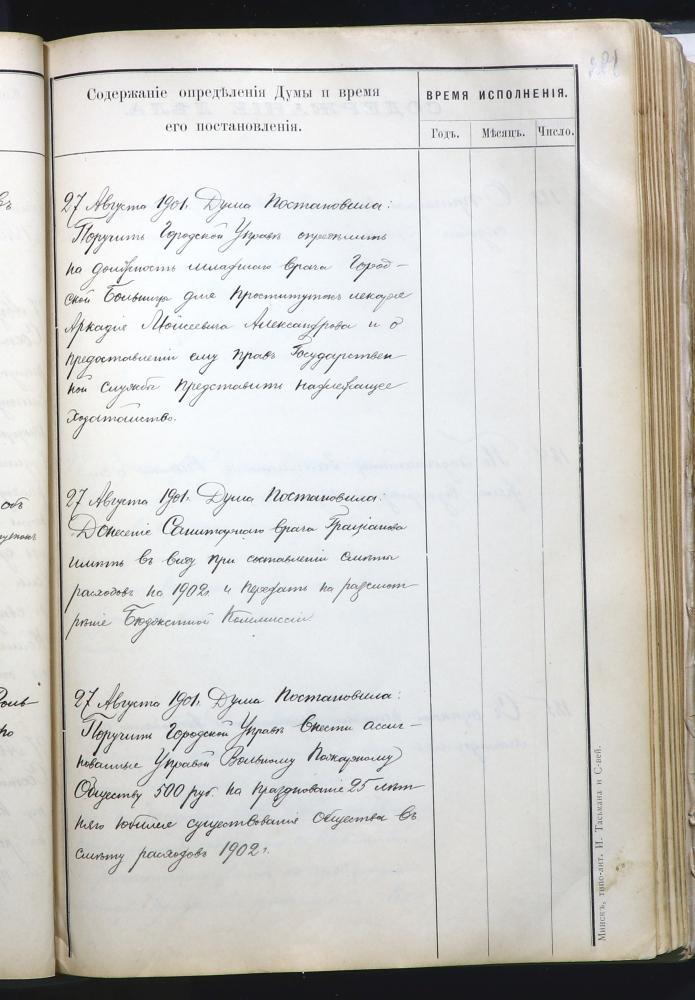 281
Содержаніе опредѣленія Думы и время
его постановленія.
ВРЕМЯ ИСПОЛНЕНІЯ.
Годъ. Мѣсяцъ. Число.
27 Августа 1901 г. Дума Постановила:
Поручить Городской Управѣ опредѣлить
на должность младшаго врача Город-
ской Больницы для проститутокъ лекаря
Аркадія Моисеевича Александрова и о
предоставленіи ему правъ Государствен
ной службы представить надлежащее
Ходатайство.
27 Августа 1901 г. Дума Постановила:
Донесеніе Санитарнаго врача Граціанова
имѣть въ виду при составленіи смѣты
расходовъ на 1902 г. и передать на разсмот-
рѣніе Бюджетной Коммиссіи.
27 Августа 1901 г. Дума Постановила:
Поручить Городской Управѣ внести ассиг-
нованные Управой Вольному Пожарному
Обществу 500 руб. на празднованіе 25 лѣт
няго юбилея существованія Общества въ
смѣту расходовъ 1902 г.
Минскъ, типо-лит. И. Тасьмана и С-вей.
объ
Воль